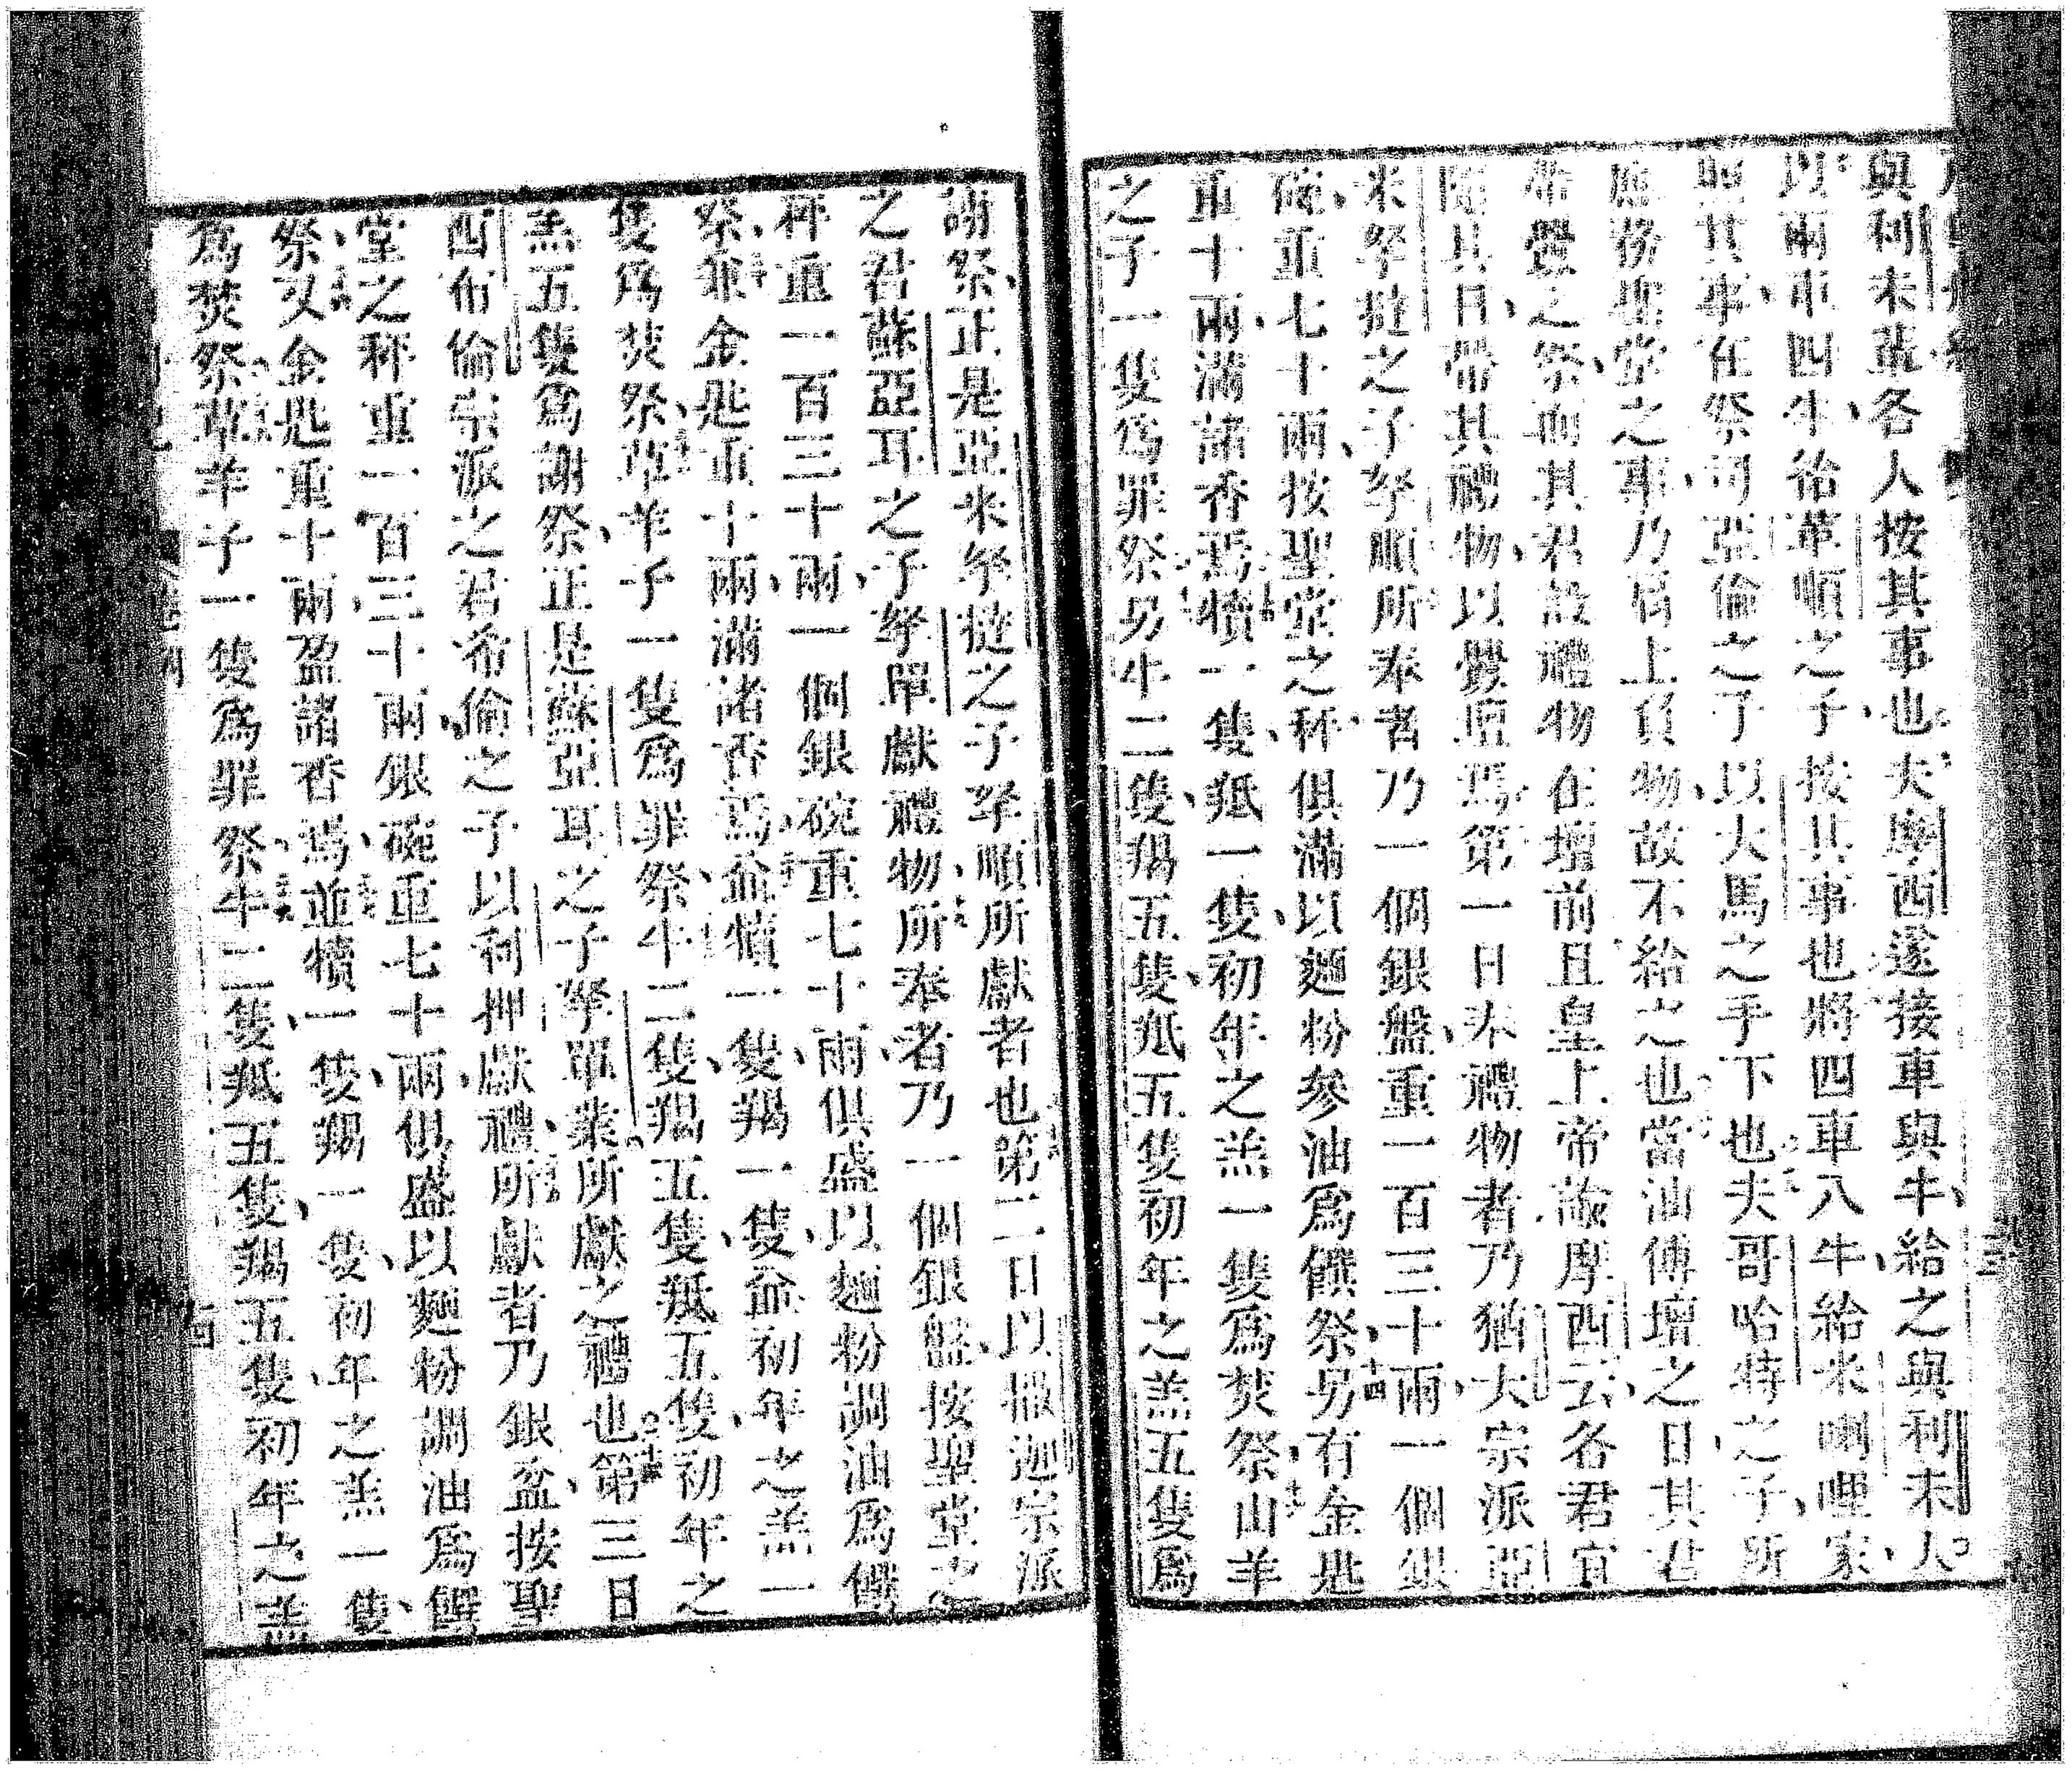 與利未輩各人按其事也夫摩西遂接車與牛給之與利未人
以兩車四牛給革順之子按其事也將四車八牛給米喇哩家
照其事在祭司亞倫之子以大馬之手下也夫哥哈特之子所
應務聖堂之事乃肩上負物故不給之也當油傅壇之日其君
帶釁之祭而其君設禮物在壇前且皇上帝諭摩西云各君宜
隨其日帶其禮物以釁壇焉第一日奉禮物者乃猶大宗派亞
米拏撻之子拏順所奉者乃一個銀盤重一百三十兩一個銀
碗重七十兩按聖堂之秤俱滿以麵粉參油為饌祭另有金匙
重十兩滿諸香焉犢一隻羝一隻初年之羔一隻為焚祭山羊
之子一隻為罪祭另牛二隻羯五隻羝五隻初年之羔五隻為
謝祭正是亞米拏撻之子拏順所獻者也第二日以撒迦宗派
之君蘇亞耳之子拏單獻禮物所奉者乃一個銀盤按聖堂之
秤重一百三十兩一個銀碗重七十兩俱盛以麵粉調油為饌
祭並金匙重十兩滿諸香焉並犢一隻羯一隻並初年之羔一
隻為焚祭草羊子一隻為罪祭牛二隻羯五隻羝五隻初年之
羔五隻為謝祭正是蘇亞耳之子拏單業所獻之禮也第三日
西布倫宗派之君希倫之子以利押獻禮所獻者乃銀盆按聖
堂之秤重一百三十兩銀碗重七十兩俱盛以麵粉調油為饌
祭又金匙重十兩盈諸香焉並犢一隻羯一隻初年之羔一隻
為焚祭草羊子一隻為罪祭牛二隻羝五隻羯五隻初年之羔